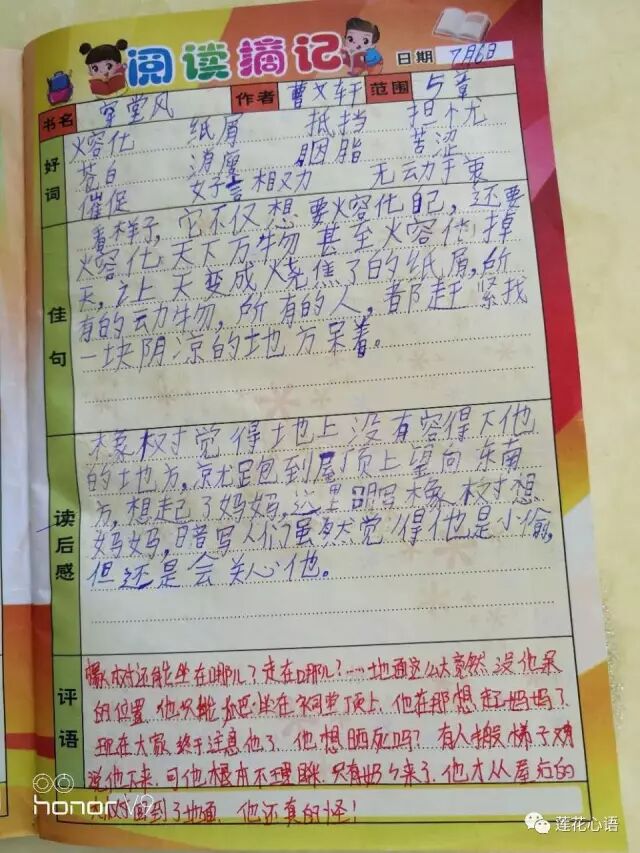 阅读摘记 日期 7月6日
书名 穿堂风 作者 曹文轩 范围 5章
好词
熔化 纸屑 抵挡 担忧
苍白 浓厚 胭脂 苦涩
催促 好言相劝 无动于衷
佳句
看样子,它不仅想要熔化自己,还要
熔化天下万物甚至熔化掉
天,让天变成烧焦了的纸屑,所
有的动物,所有的人,都赶紧找
一块阴凉的地方呆着。
读后感
橡树觉得地上没有容得下他
的地方,就爬到屋顶上望向东南
方,想起了妈妈,这里明写橡树想
妈妈,暗写人们虽然觉得他是小偷,
但还是会关心他。
评语
橡树还能坐在哪儿?走在哪儿?……地面这么大竟然没他呆
的位置 他只能 坐在 顶上,他在那想起妈妈了
现在大家终于注意他了 他想晒死吗?有人搬梯子 劝
说他下来,可他根本不理睬,只有奶奶来了,他才从屋后的
树回到了地面,他还真的怪!
honor V9
莲花心语